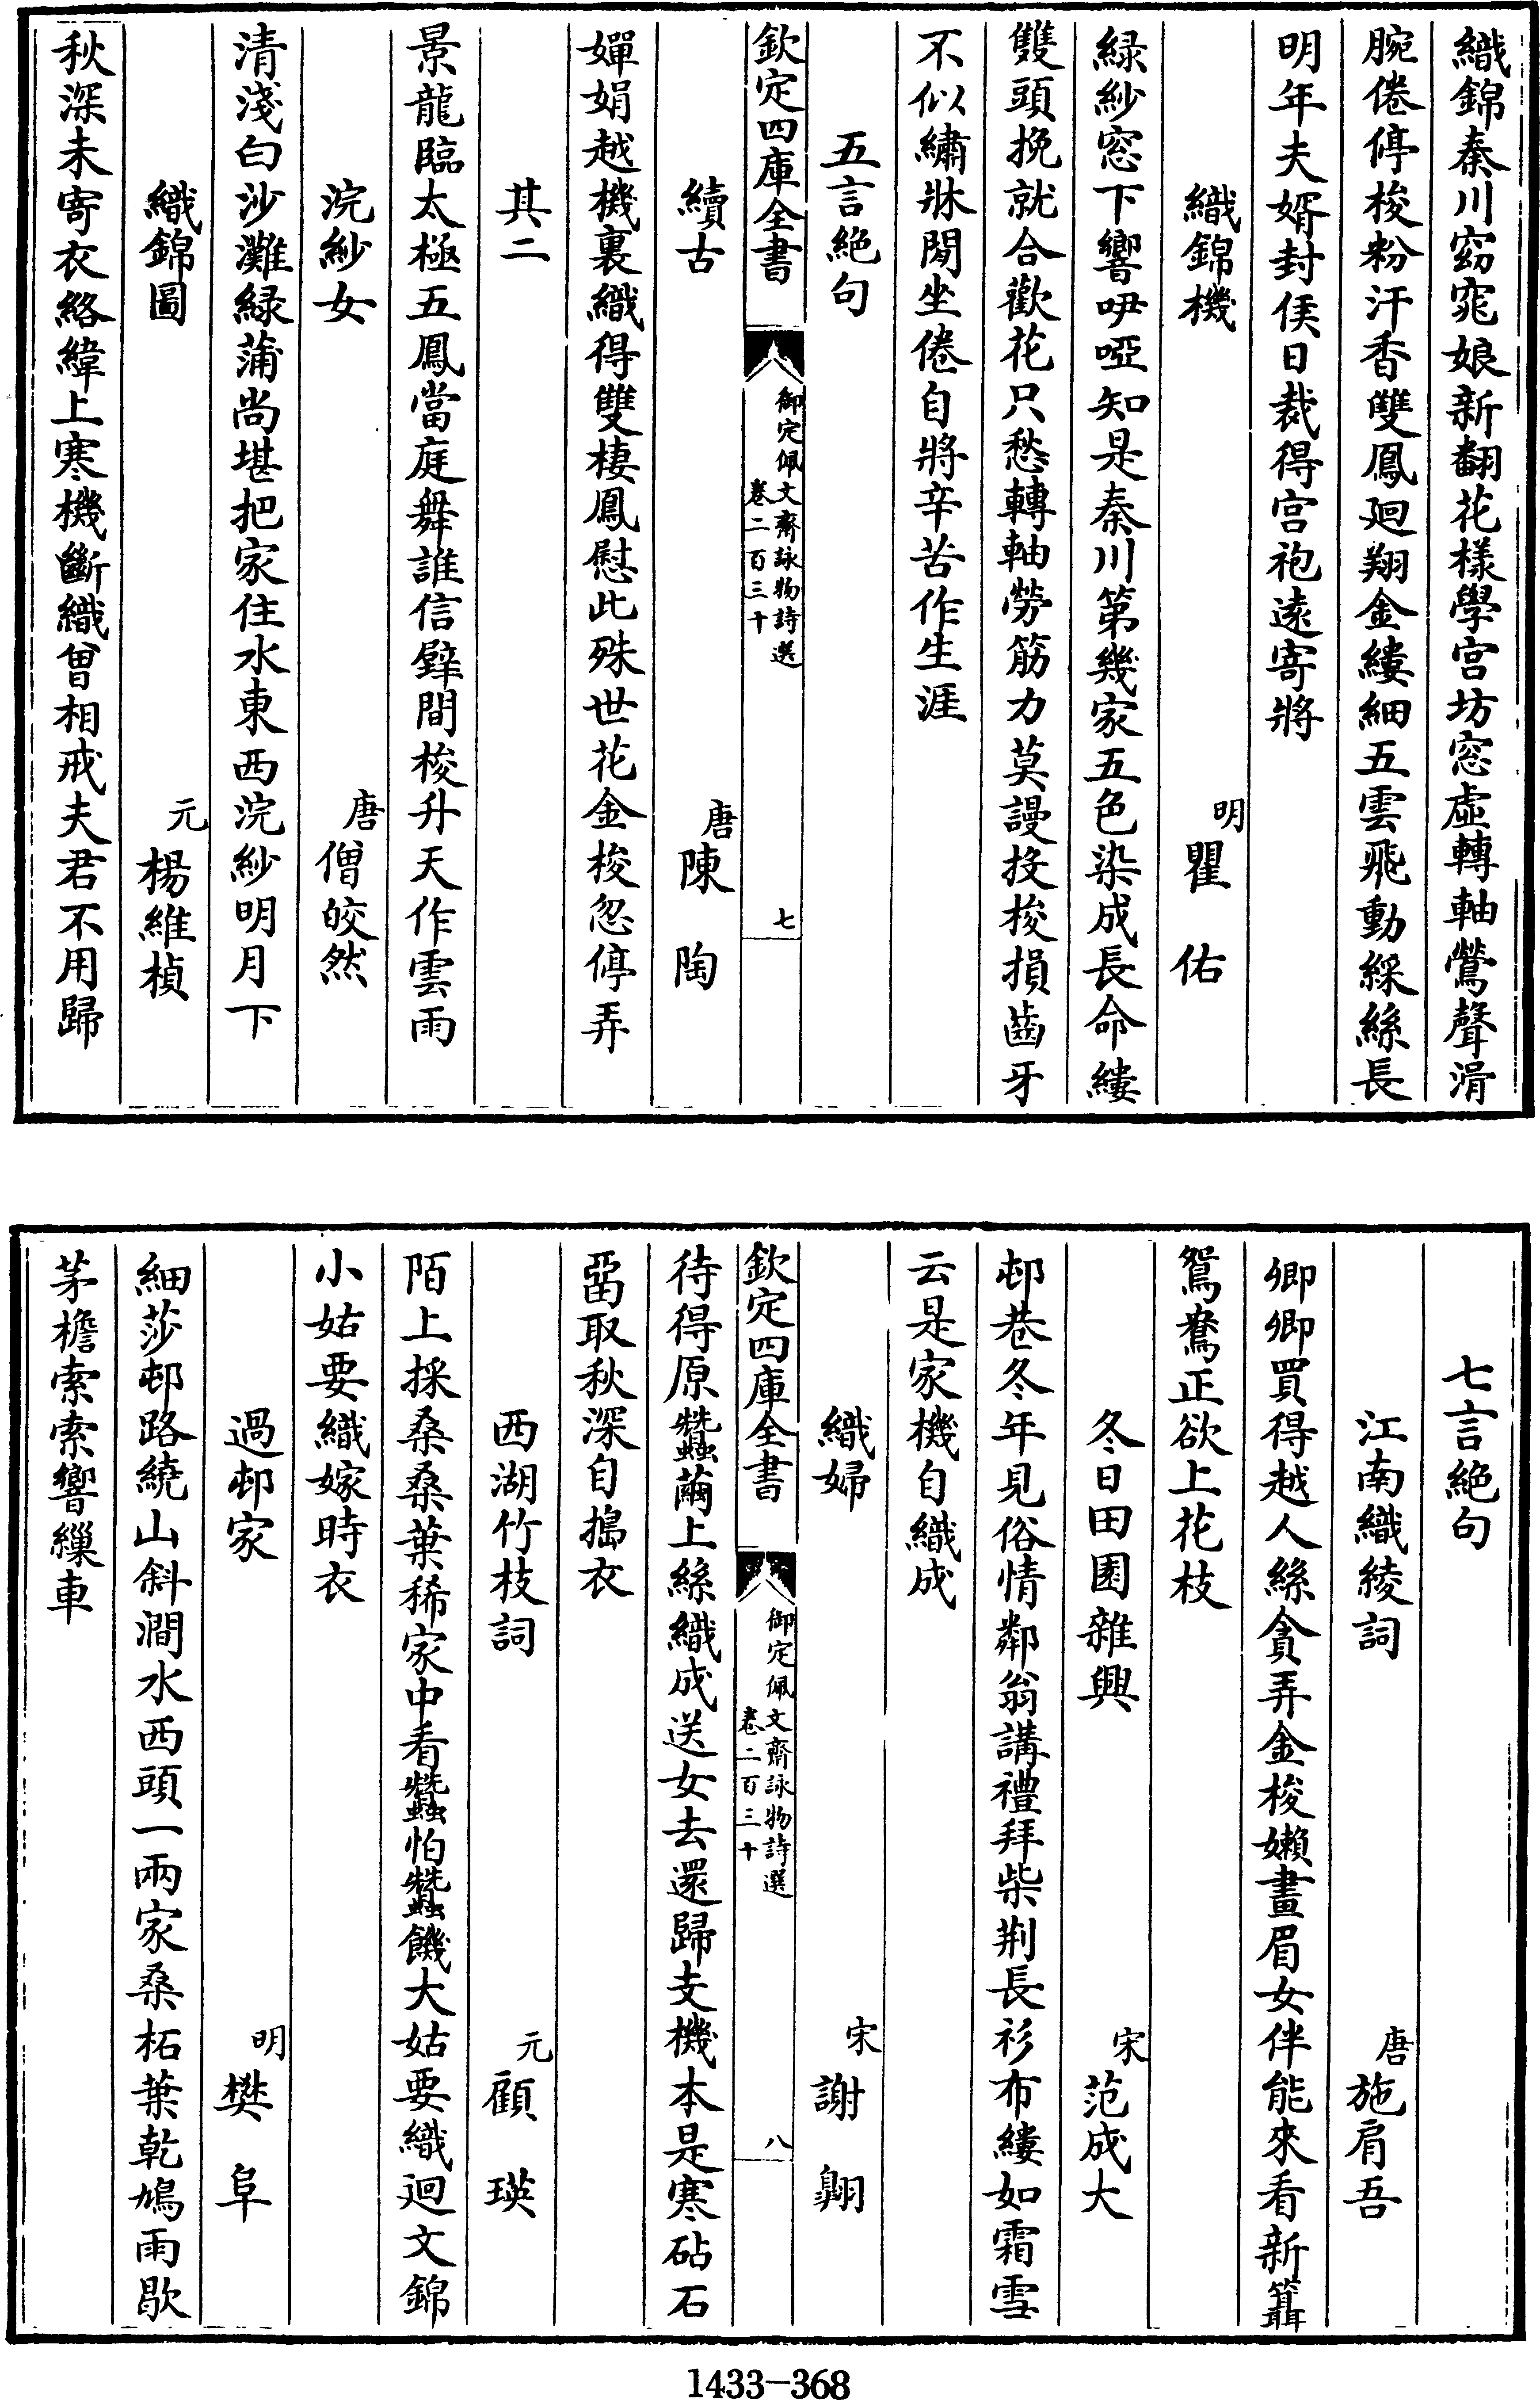 織錦秦川窈窕娘新翻花樣學宮坊窓虛轉軸鶯聲滑
腕倦停梭粉汗香雙鳳廻翔金縷細五雲飛動綵絲長
明年夫婿封侯日裁得宮袍遠寄將
織錦機 明 瞿佑
緑紗窓下響咿啞知是秦川第幾家五色染成長命縷
雙頭挽就合歡花只愁轉軸勞筋力莫謾投梭損齒牙
不似繡牀閒坐倦自將辛苦作生涯
五言絶句
欽定四庫全書 御定佩文齋詠物詩選 卷二百三十 七
續古 唐 陳陶
嬋娟越機裏織得雙棲鳳慰此殊世花金梭忽停弄
其二
景龍臨太極五鳳當庭舞誰信壁間梭升天作雲雨
浣紗女 唐 僧皎然
清淺白沙灘緑蒲尚堪把家住水東西浣紗明月下
織錦圖 元 楊維楨
秋深未寄衣絡緯上寒機斷織曾相戒夫君不用歸
七言絶句
江南織綾詞 唐 施肩吾
卿卿買得越人絲貪弄金梭嬾畫眉女伴能來看新䉖
鴛鴦正欲上花枝
冬日田園雜興 宋 范成大
邨巷冬年見俗情鄰翁講禮拜柴荆長衫布縷如霜雪
云是家機自織成
織婦 宋 謝翺
欽定四庫全書 御定佩文齋詠物詩選 卷二百三十 八
待得原蠶繭上絲織成送女去還歸支機本是寒砧石
畱取秋深自搗衣
西湖竹枝詞 元 顧瑛
陌上採桑桑葉稀家中看蠶怕蠶饑大姑要織迴文錦
小姑要織嫁時衣
過邨家 明 樊阜
細莎邨路繞山斜澗水西頭一兩家桑柘葉乾鳩雨歇
茅檐索索響繅車
1433-368